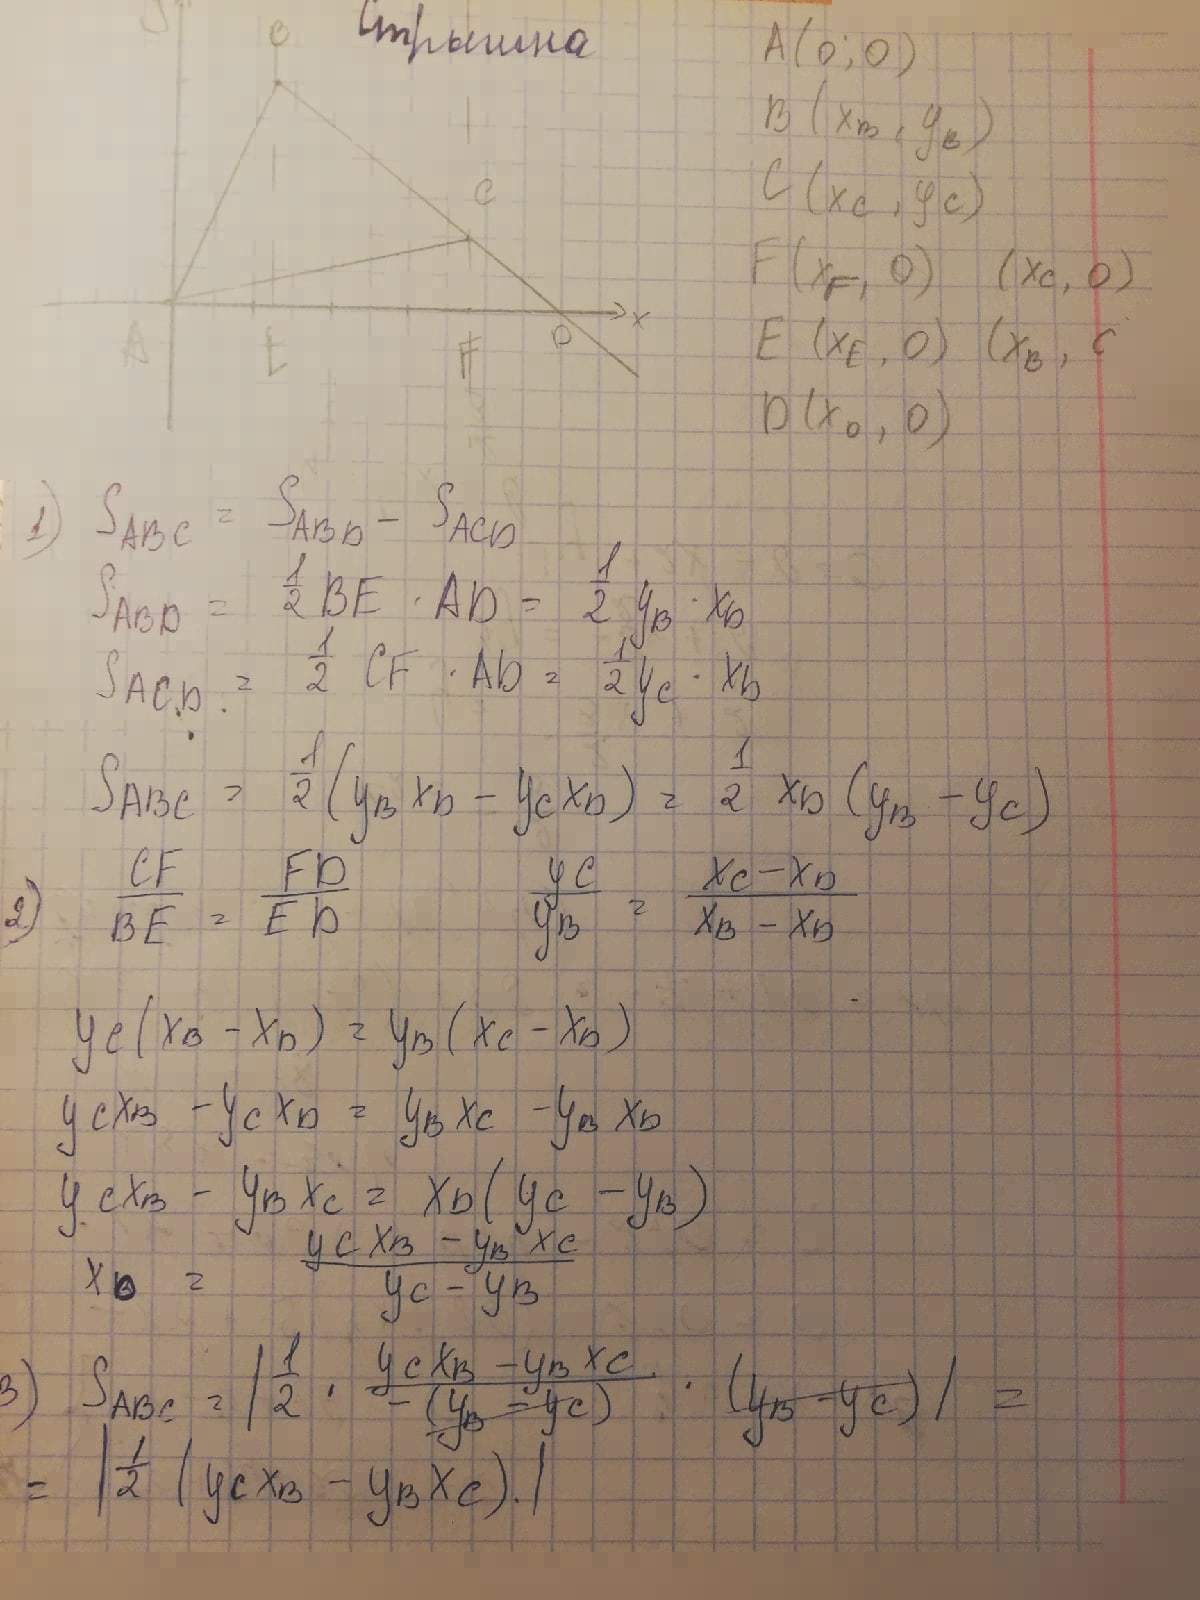 Стрыгина
y
B
C
A
E
F
D
x
A(0;0)
B(xB, yB)
C(xC, yC)
F(xF, 0) (xC, 0)
E(xE, 0) (xB, 0
D(xD, 0)
1) SABC = SABD - SACD
SABD = 1/2 BE · AD = 1/2 yB · xD
SACD = 1/2 CF · AD = 1/2 yC · xD
SABC = 1/2 (yB xD - yC xD) = 1/2 xD (yB - yC)
2) CF/BE = FD/ED yC/yB = (xC - xD)/(xB - xD)
yC(xB - xD) = yB(xC - xD)
yC xB - yC xD = yB xC - yB xD
yC xB - yB xC = xD(yC - yB)
xD = (yC xB - yB xC)/(yC - yB)
3) SABC = |1/2 · (yC xB - yB xC)/(-(yB - yC)) · (yB - yC)| =
= |1/2 (yC xB - yB xC).|